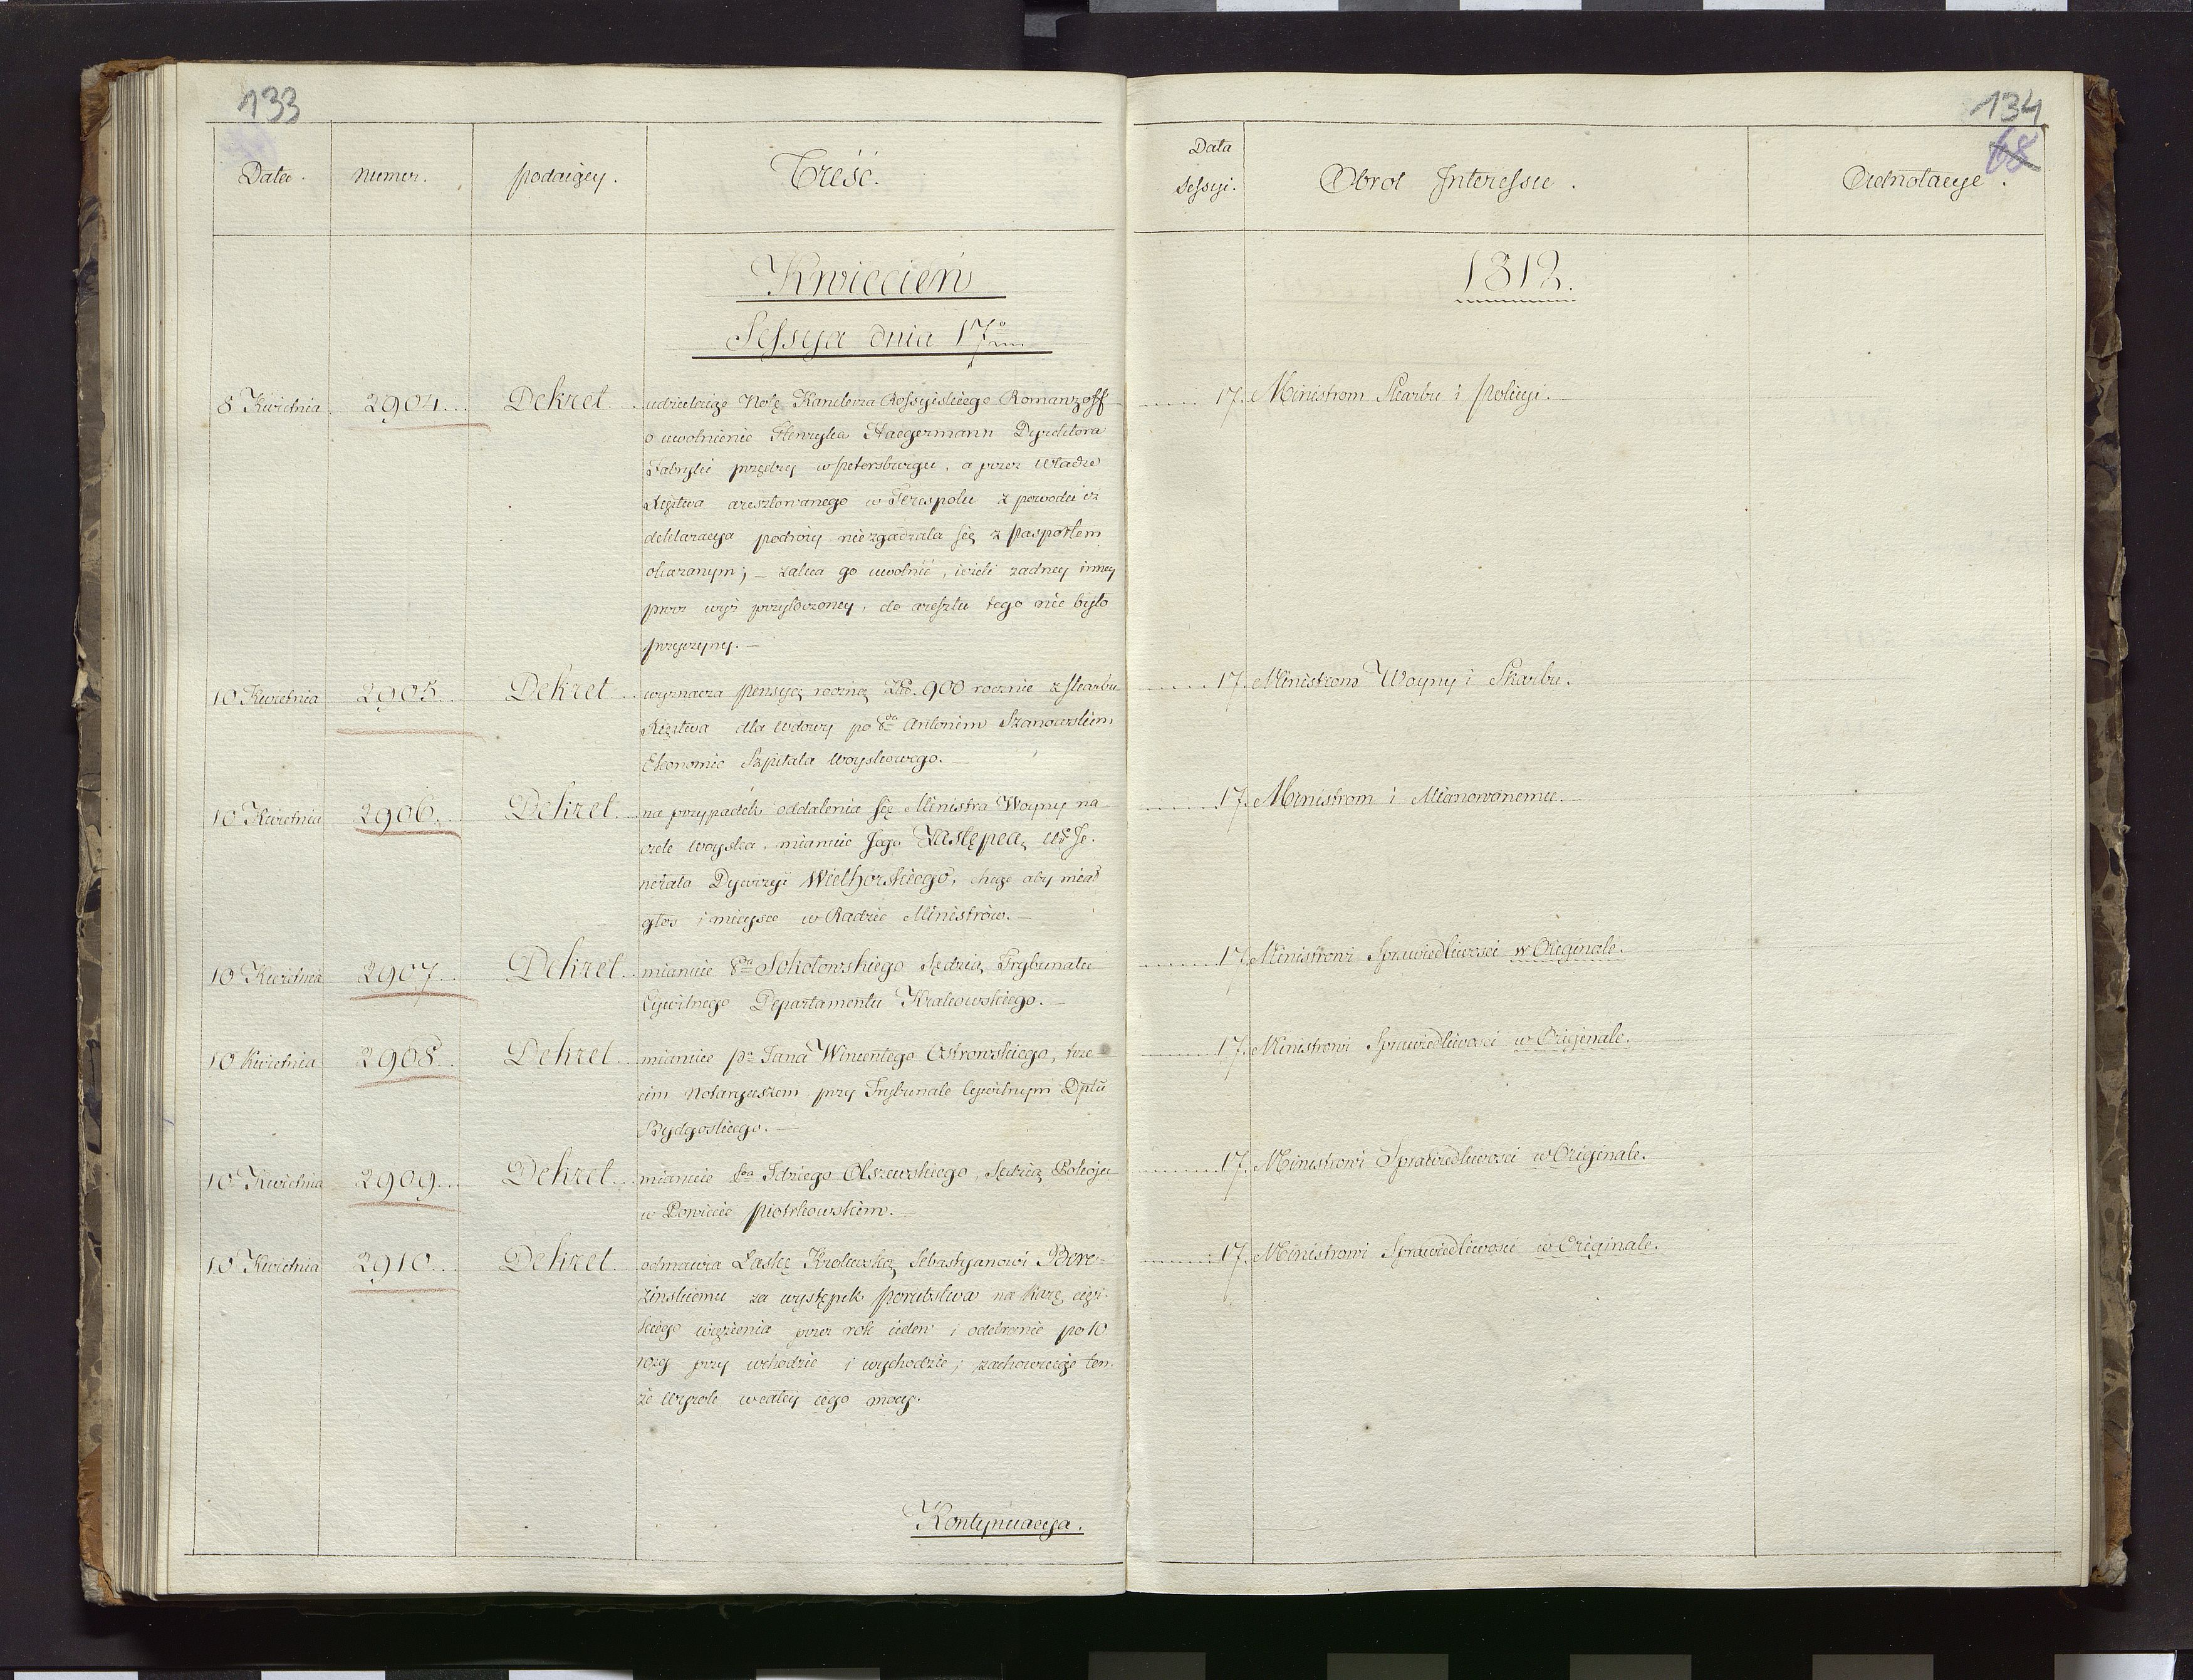 133
Data. Numer. podaiący. Treść.
Kwiecień
Sessya dnia 17º
8 Kwietnia 2904 Dekret udzielaiąc Notę Kanclerza Rossyiskiego Romanzoff
o uwolnienie Henryka Haegermann Dyrektora
Fabryki przędzy w Petersburgu, a przez Władze
Xięstwa aresztowanego w Terespolu z powodu iż
deklaracya podróży niezgadzała się z Pasportem
okazanym; – zaleca go uwolnić, ieżeli żadney inney
prócz wyż przytoczoney, do aresztu tego nie było
przyczyny. –
10 Kwietnia 2905 Dekret wyznacza pensyą roczną Złp. 900 rocznie z Skarbu
Xięstwa dla Wdowy po Antonim Szanowskim
Ekonomie Szpitala Woyskowego. –
10 Kwietnia 2906 Dekret na przypadek oddalenia się Ministra Woyny na
czele woyska, mianuie Jego Zastępcą, Je-
nerała Dywizyi Wielhorskiego, chcąc aby miał
głos i mieysce w Radzie Ministrów. –
10 Kwietnia 2907 Dekret mianuie Sokołowskiego Sędzią Trybunału
Cywilnego Departamentu Krakowskiego. –
10 Kwietnia 2908 Dekret mianuie Pª Jana Wincentego Ostrowskiego, trze-
cim Notaryuszem przy Trybunale Cywilnym Dptu
Bydgoskiego. –
10 Kwietnia 2909 Dekret mianuie Idziego Olszewskiego, Sędzią Pokoju
w Powiecie Piotrkowskim.
10 Kwietnia 2910 Dekret odmawia Łaskę Krolewską Sebastyanowi
za występek porubstwa na karę cięż-
kiego więzienia przez rok ieden i odebranie po 10
rózg przy wchodzie i wychodzie; zachowuiąc ten-
że Wyrok w całey iego mocy.
Kontynuacya.
134
68
Data
Sessyi. Obrot Interessu. Adnotacye.
1812.
17. Ministrom Skarbu i Policyi.
17. Ministrom Woyny i Skarbu.
17. Ministrom i Mianowanemu.
17. Ministrowi Sprawiedliwości w Originale.
17. Ministrowi Sprawiedliwości w Originale.
17. Ministrowi Sprawiedliwości w Originale.
17. Ministrowi Sprawiedliwości w Originale.